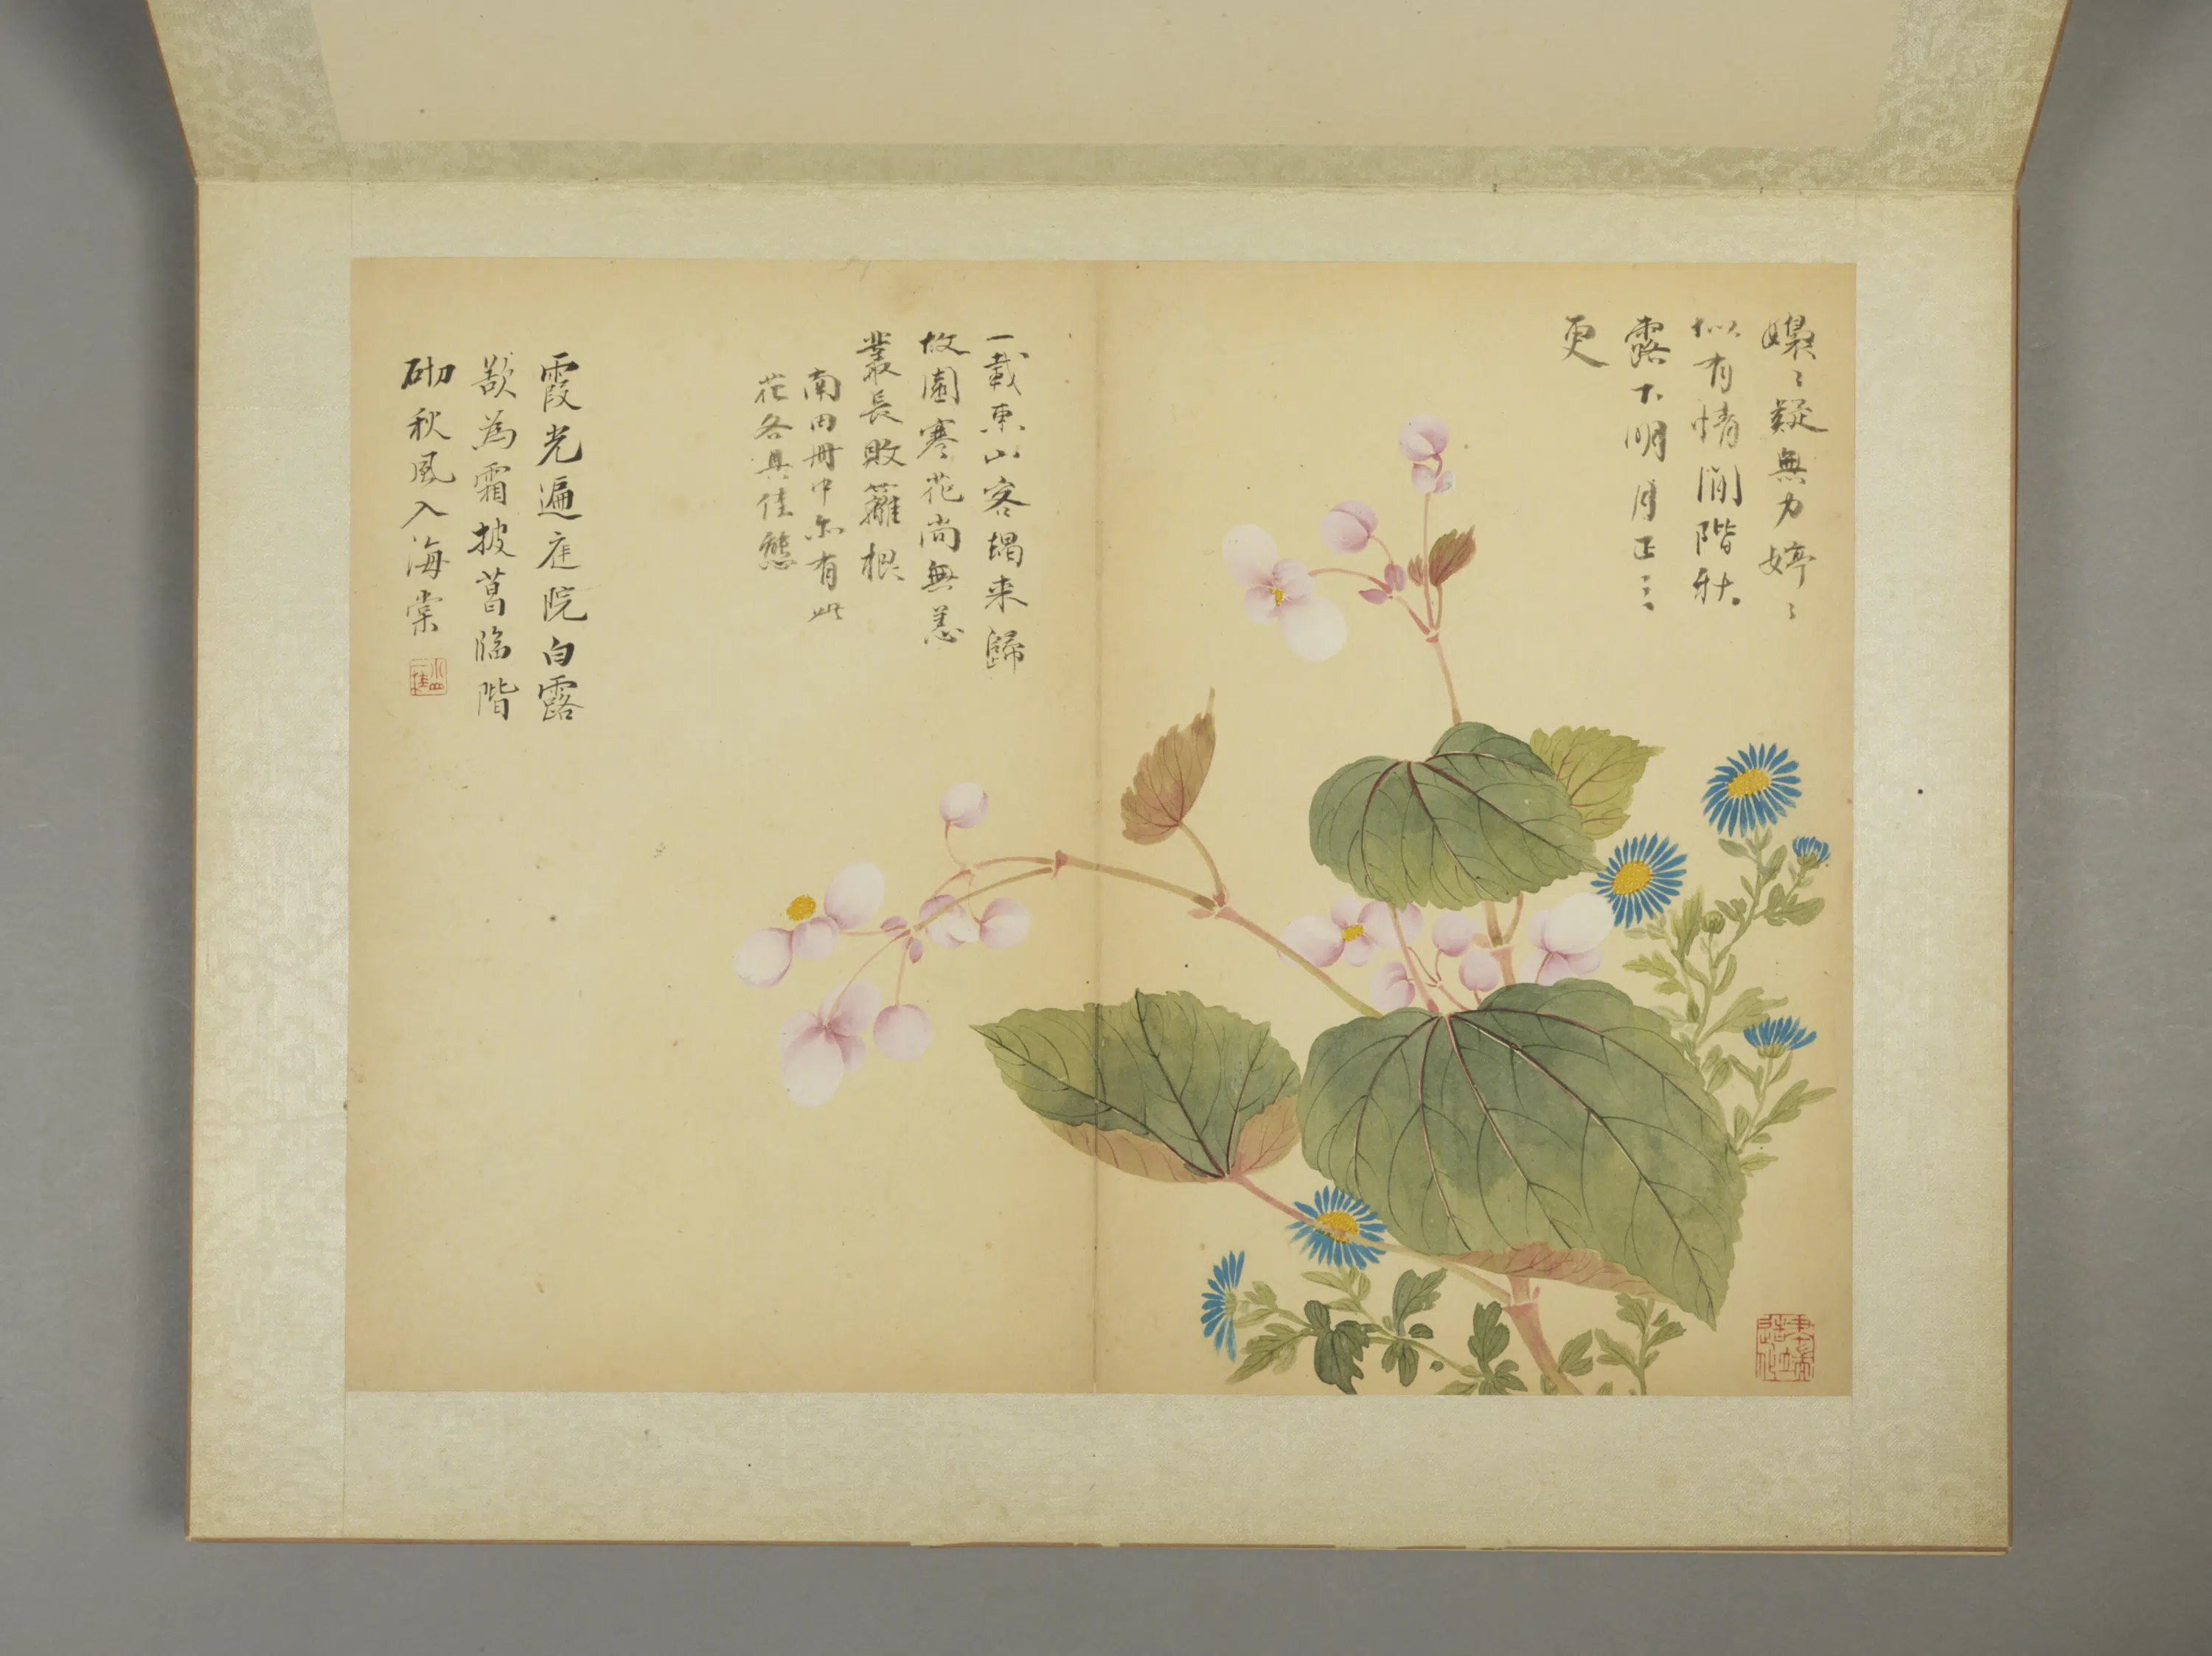 嬝〻疑無力婷〻
似有情閒階秋
露下明月正三
更
一載東山客朅来歸
故園寒花尚無恙
叢長敗籬根
南田冊中亦有此
花各具佳態
霞光遍庭院白露
歘為霜披菖臨階
砌秋風入海棠